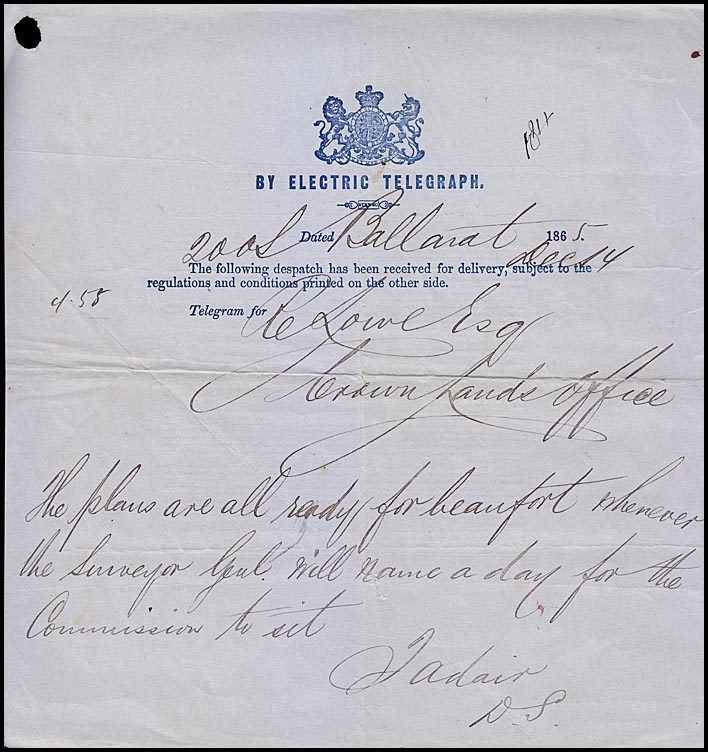 BY ELECTRIC TELEGRAPH.
Dated Ballarat 1865.
Dec 14
The following despatch has been received for delivery, subject to the
regulations and conditions printed on the other side.
4.55
Telegram for C Lowe Esq
Crown Lands Office
The plans are all ready for beaufort whenever
the Surveyor Genl. will name a day for the
Commission to sit
J adair
D.S.